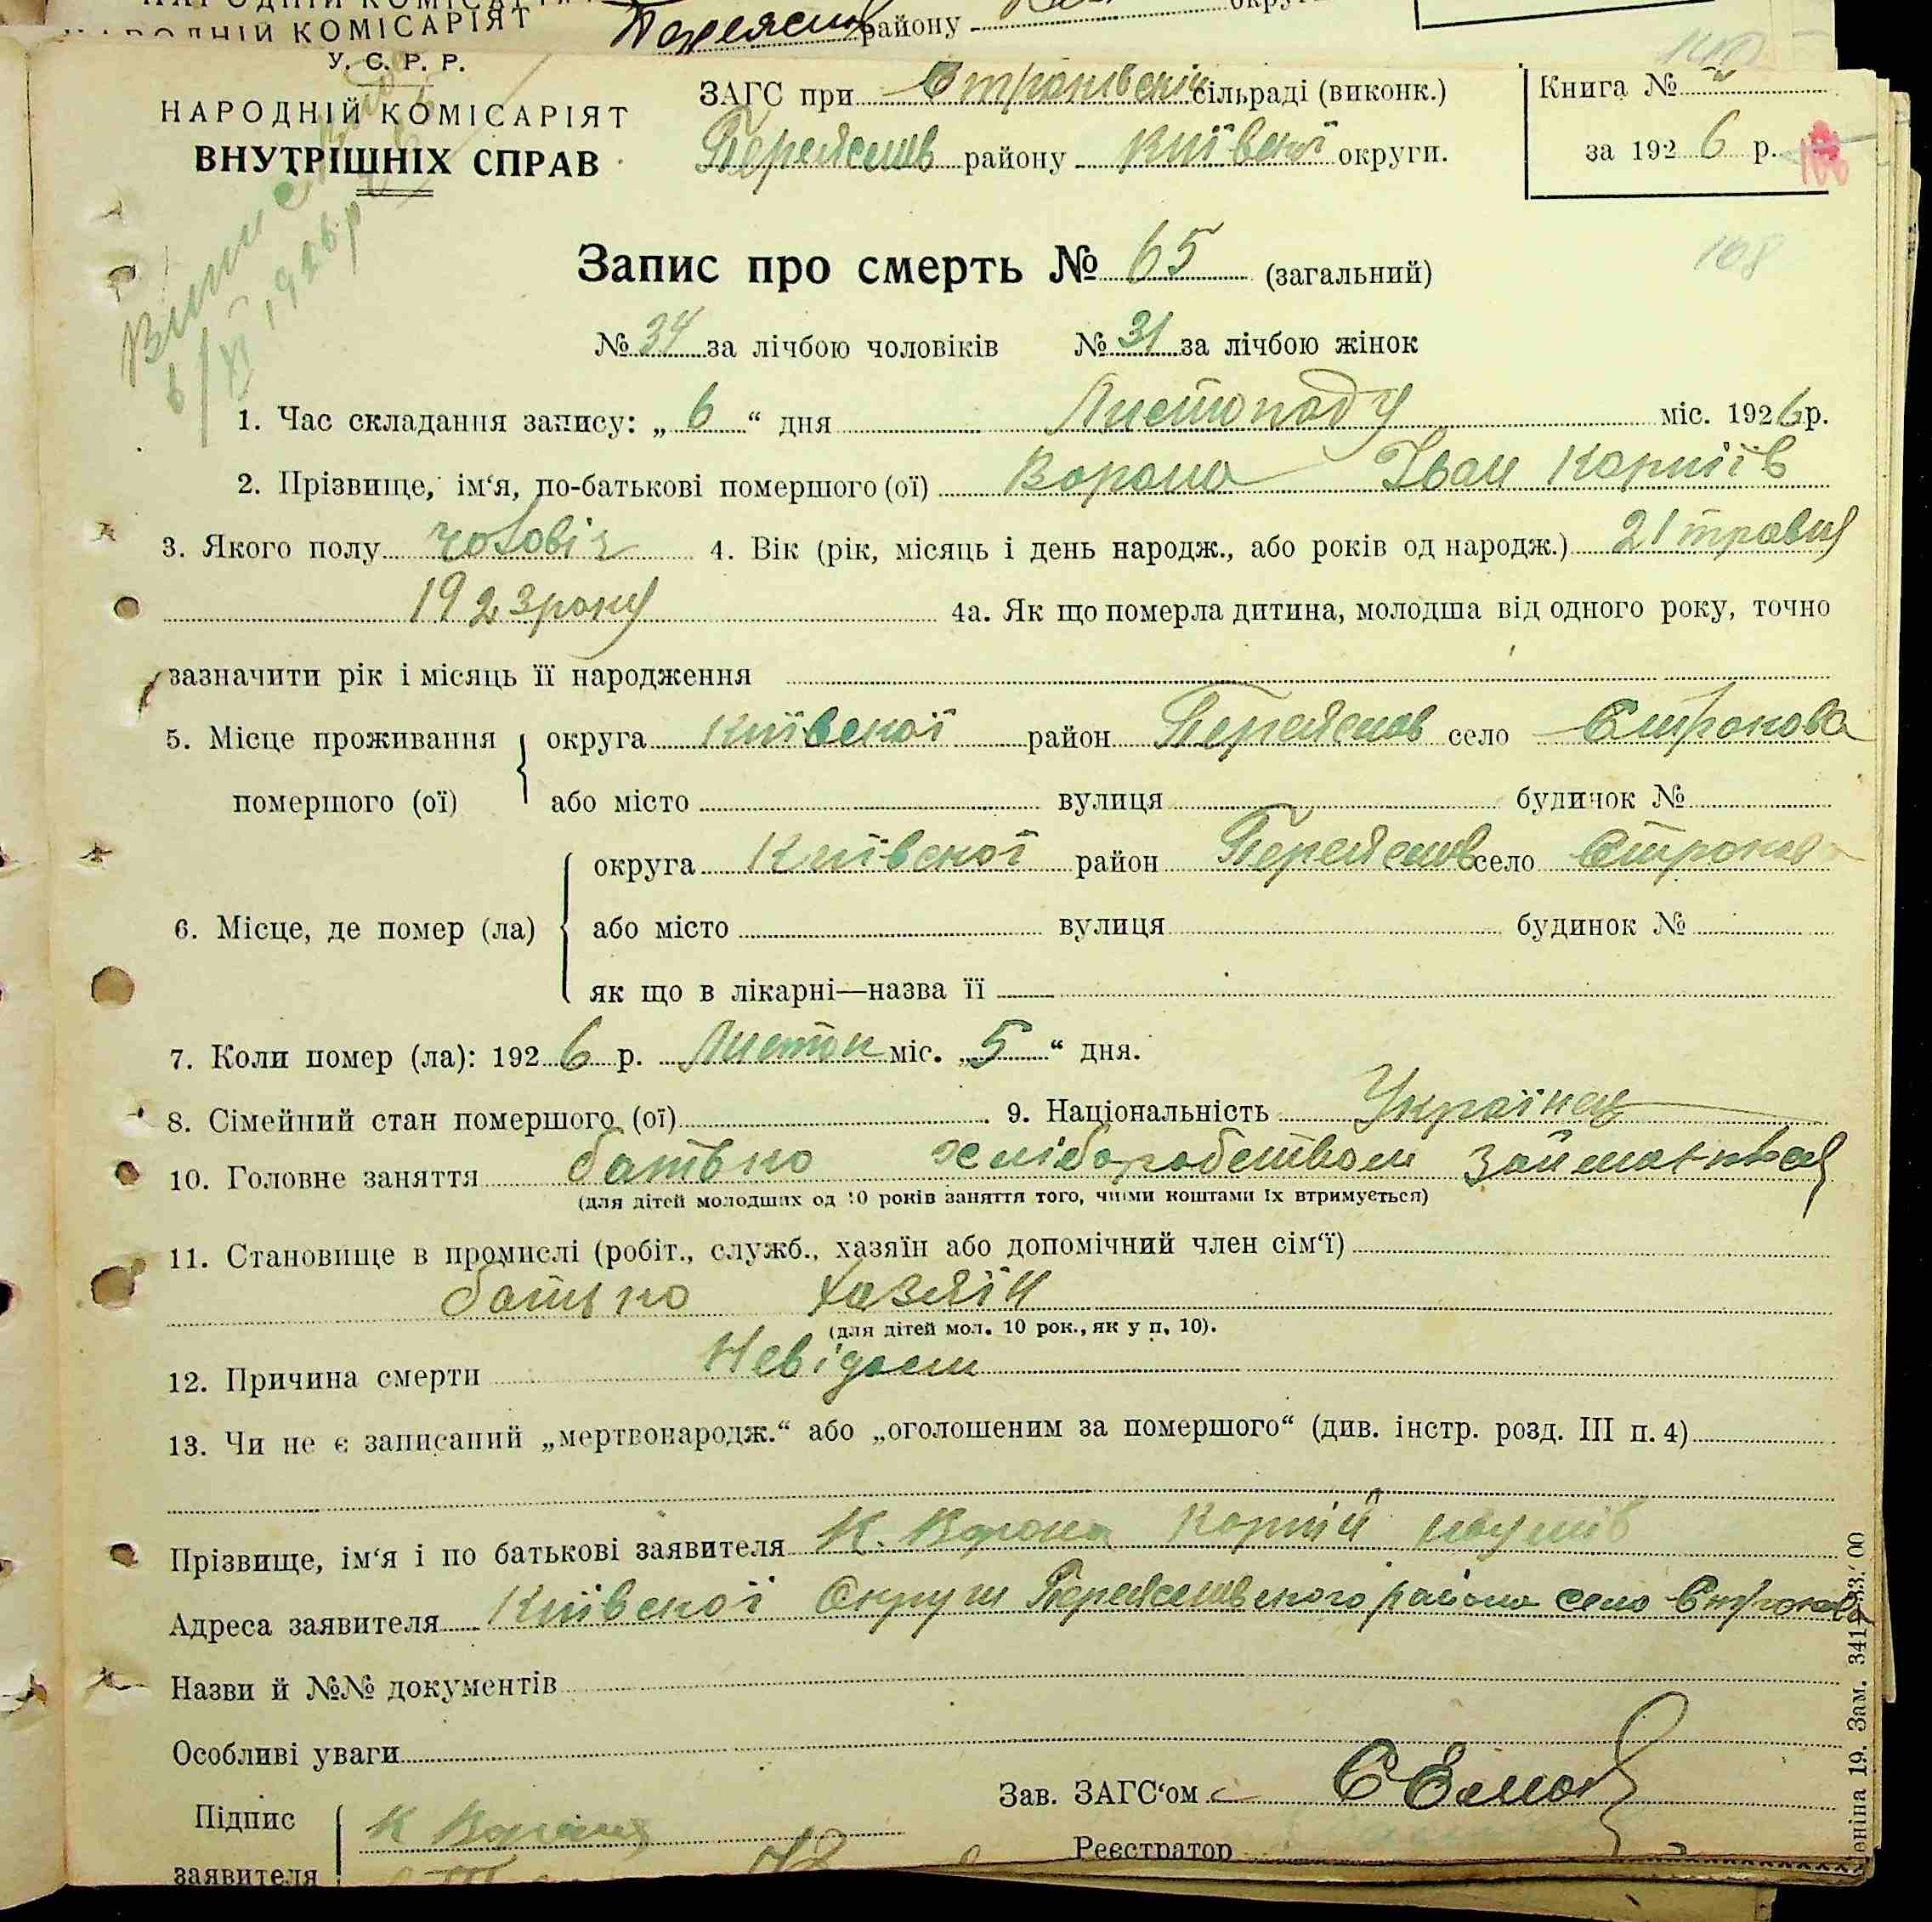 НАРОДНІЙ КОМІСАРІЯТ
району
У. С. Р. Р.
НАРОДНІЙ КОМІСАРІЯТ
ВНУТРІШНІХ СПРАВ
ЗАГС при Строківській сільраді (виконк.)
Переяслів району Київської округи.
Книга №
за 1926 р.
108
Запис про смерть № 65 (загальний)
№ 34 за лічбою чоловіків № 31 за лічбою жінок
1. Час складання запису: „ 6 “ дня Листопаду міс. 1926 р.
2. Прізвище, ім‘я, по-батькові помершого (ої) Ворона Іван Корніїв
3. Якого полу чоловік 4. Вік (рік, місяць і день народж., або років од народж.) 21 травня
1923 року 4а. Як що померла дитина, молодша від одного року, точно
зазначити рік і місяць її народження
5. Місце проживання помершого (ої)
округа Київської район Переяслов село Строкова
або місто вулиця будинок №
6. Місце, де помер (ла)
округа Київської район Переяслов село Строкова
або місто вулиця будинок №
як що в лікарні—назва її
7. Коли помер (ла): 1926 р. Листоп міс. „5“ дня.
8. Сімейний стан помершого (ої) 9. Національність Українец
10. Головне заняття батько хліборобством займається
(для дітей молодших од 10 років заняття того, чиїми коштами їх втримується)
11. Становище в промислі (робіт., служб., хазяїн або допомічний член сім‘ї)
батько хазяїн
(для дітей мол. 10 рок., як у п. 10).
12. Причина смерти Невідоєм
13. Чи не є записаний „мертвонародж.“ або „оголошеним за помершого“ (див. інстр. розд. III п. 4)
Прізвище, ім‘я і по батькові заявителя К. Ворона Корній Наумів
Адреса заявителя Київської Округи Переяслівського району село Строкова
Назви й №№ документів
Особливі уваги
Зав. ЗАГС‘ом
Підпис заявителя К Ворона
Реєстратор